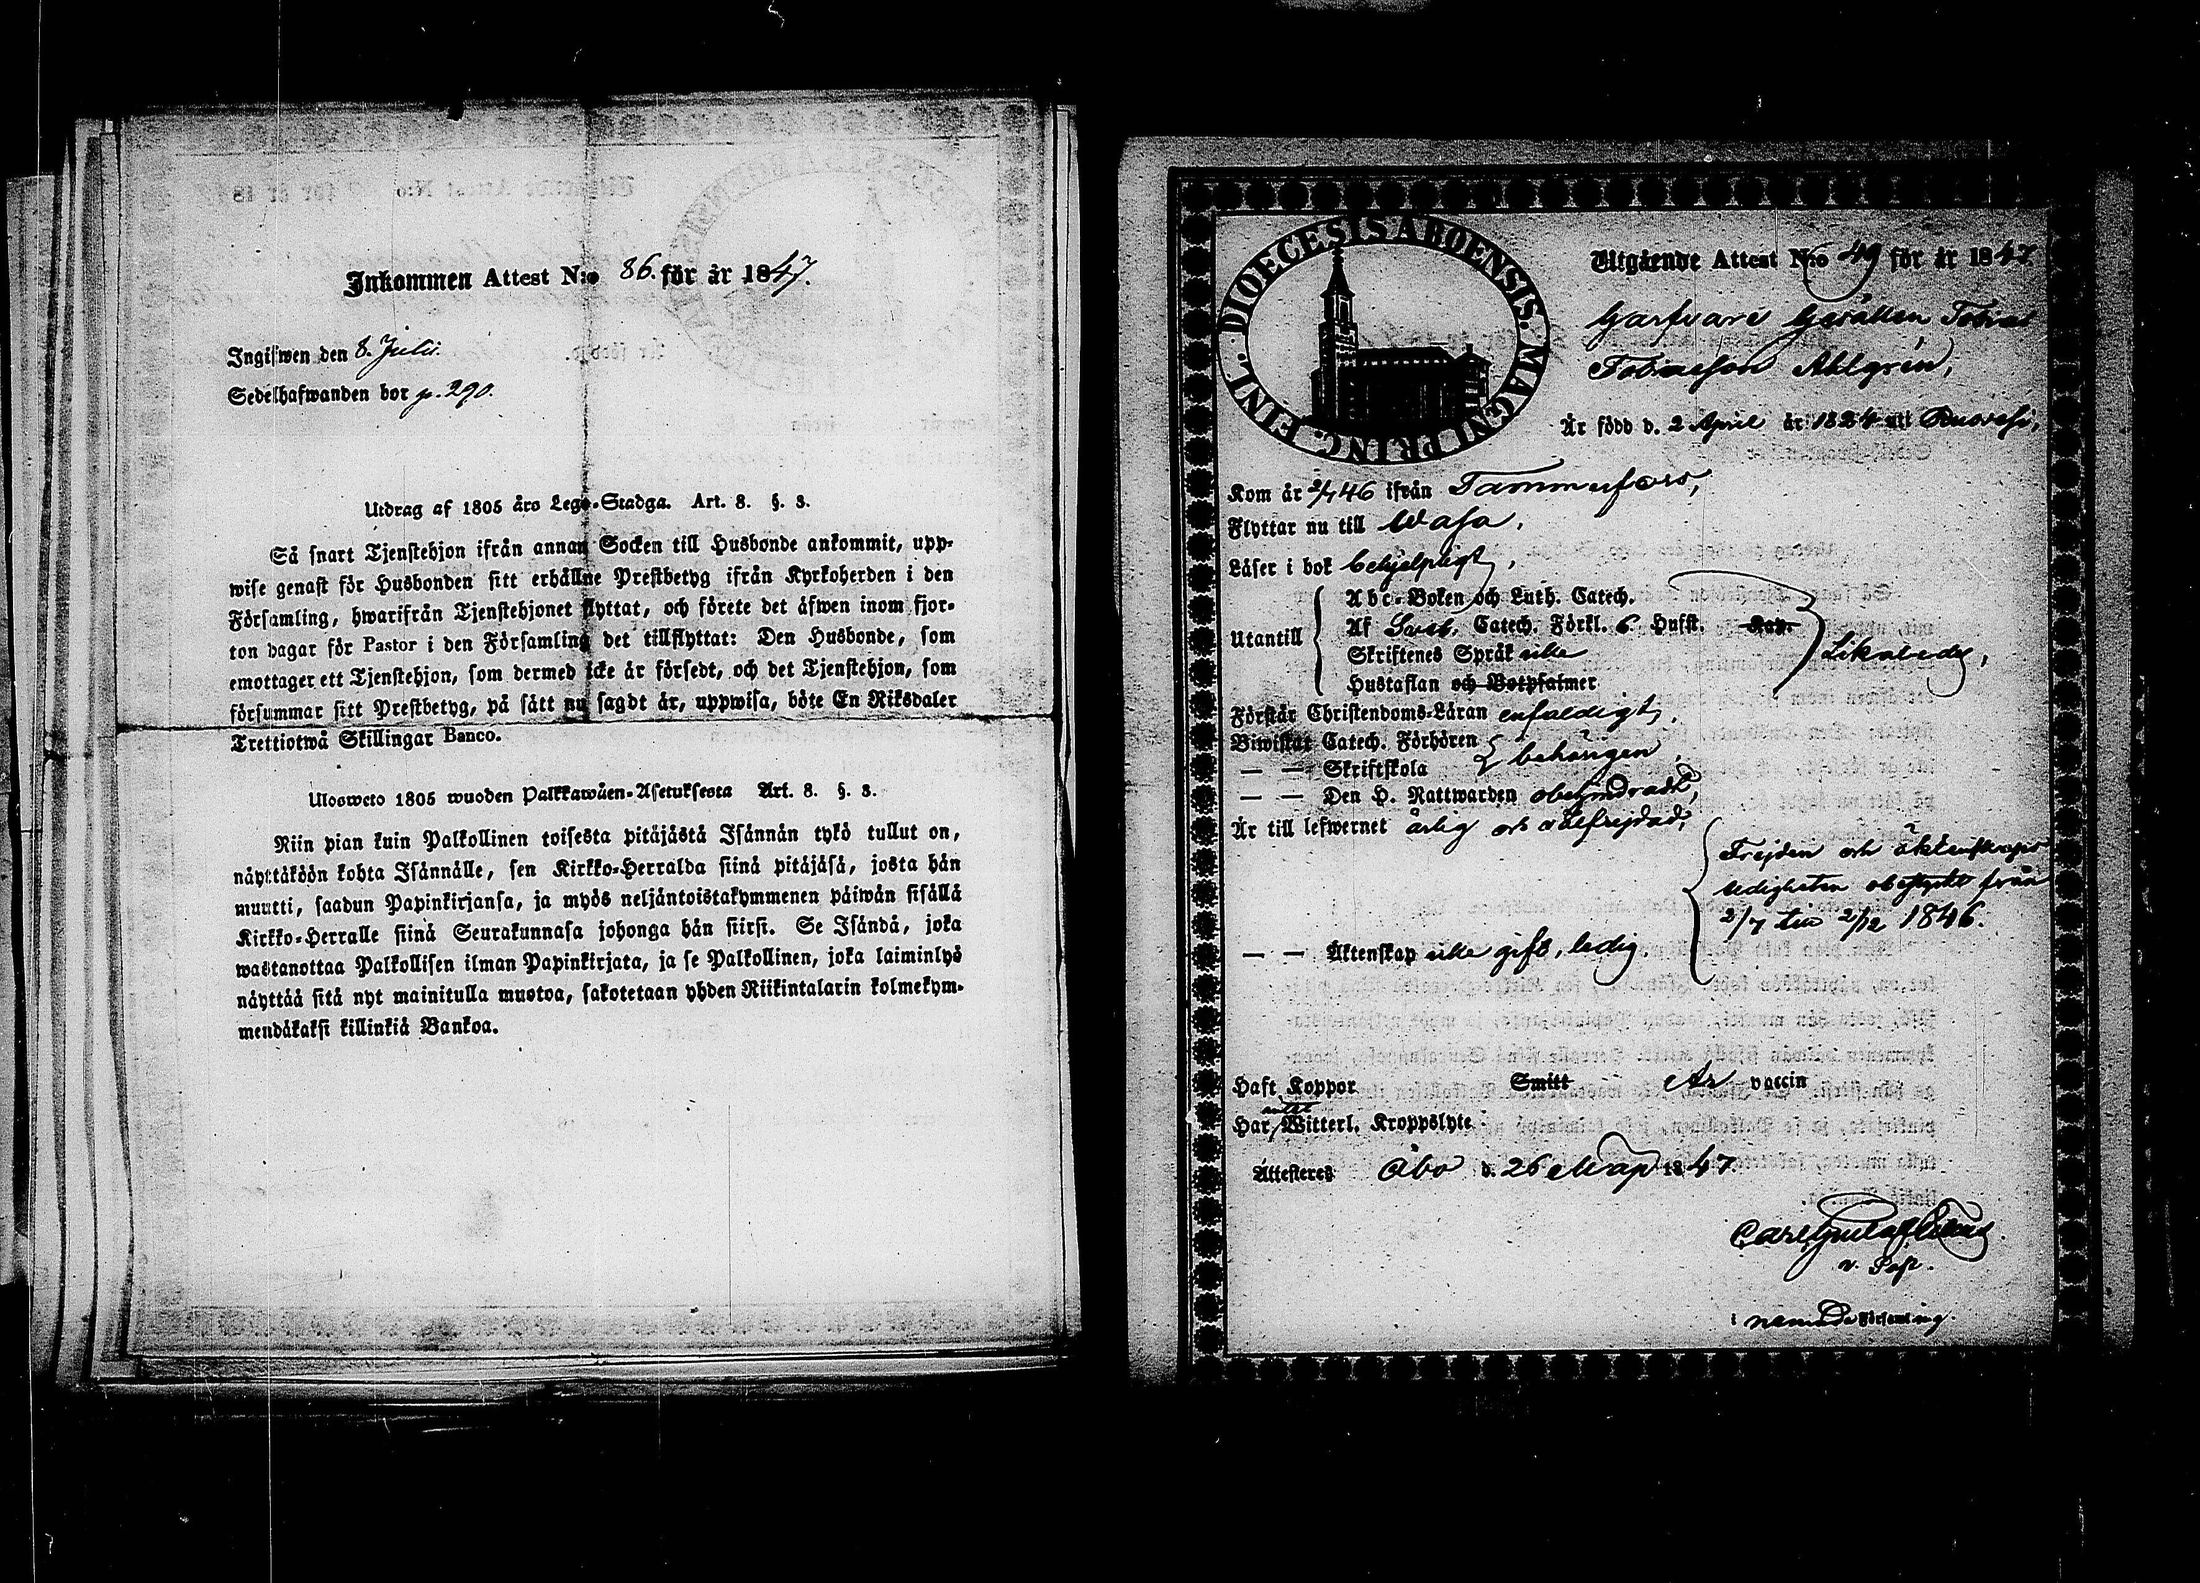 Inkommen Attest N:o 86. för år 1847.
Ingifwen den 8. Julii.
Sedelhafwanden bor p. 290.
Utdrag af 1805 års Lego-Stadga. Art. 8. §. 3.
Så snart Tjenstehjon ifrån annan Socken till Husbonde ankommit, upp-
wise genast för Husbonden sitt erhållne Prestbetyg ifrån Kyrkoherden i den
Församling, hwarifrån Tjenstehjonet flyttat, och förete det äfwen inom fjor-
ton dagar för Pastor i den Församling det tillflyttat: Den Husbonde, som
emottager ett Tjenstehjon, som dermed icke är försedt, och det Tjenstehjon, som
försummar sitt Prestbetyg, på sätt nu sagdt är, uppwisa, böte En Riksdaler
Trettiotwå Skillingar Banco.
Ulosweto 1805 wuoden Palkkawäen-Asetuksesta Art. 8. §. 3.
Niin pian kuin Palkollinen toisesta pitäjästä Isännän tykö tullut on,
näyttäköön kohta Isännälle, sen Kirkko-Herralda siinä pitäjäsä, josta hän
muutti, saadun Papinkirjansa, ja myös neljäntoistakymmenen päiwän sisällä
Kirkko-Herralle siinä Seurakunnasa johonga hän siirsi. Se Isändä, joka
wastanottaa Palkollisen ilman Papinkirjata, ja se Palkollinen, joka laiminlyö
näyttää sitä nyt mainitulla muotoa, sakotetaan yhden Riikintalarin kolmekym-
mendäkaksi killinkiä Bankoa.
DIOECESIS ABOENSIS. MAGNI PRINC. FINL.
Utgående Attest N:o 49 för år 1847
Garfvare Gesällen Tobias
Tobiasson Ahlgrén,
Är född d. 2 April år 1824 uti Ruovesi,
Kom år 2/7 46 ifrån Tammerfors,
Flyttar nu till Wasa,
Läser i bok behjelpligt,
Utantill
Abc-Boken och Luth. Catech.
Af Sveb. Catech. Förkl. 6 Hufst. Kap.
Skriftenes Språk icke
Hustaflan och Botpsalmer
Förstår Christendoms-Läran enfaldigt,
Biwistat Catech. Förhören
— — Skriftskola
behörigen,
— — Den H. Nattwarden obehindradt,
Är till lefwernet ärlig och välfrejdad,
Frejden och äktenskaps
ledigheten obestyrkt från
2/7 till 2/12 1846.
— — Äktenskap icke gift, ledig.
Haft Koppor Smitt Är vaccin
Har intet Witterl. Kroppslyte.
Attesteres Åbo d. 26 Maji 1847
Carl Gustaf
v. Past.
i nämnde Församling.